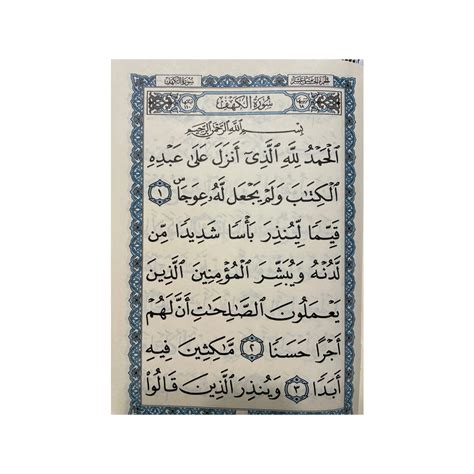 سُورَةُ الكَهْفِ
سُورَةُ الكَهْفِ
بِسْمِ ٱللَّهِ ٱلرَّحْمَٰنِ ٱلرَّحِيمِ
ٱلْحَمْدُ لِلَّهِ ٱلَّذِىٓ أَنزَلَ عَلَىٰ عَبْدِهِ
ٱلْكِتَٰبَ وَلَمْ يَجْعَل لَّهُۥ عِوَجَاۜ ١
قَيِّمًا لِّيُنذِرَ بَأْسًا شَدِيدًا مِّن
لَّدُنْهُ وَيُبَشِّرَ ٱلْمُؤْمِنِينَ ٱلَّذِينَ
يَعْمَلُونَ ٱلصَّٰلِحَٰتِ أَنَّ لَهُمْ
أَجْرًا حَسَنًا ٢ مَّٰكِثِينَ فِيهِ
أَبَدًا ٣ وَيُنذِرَ ٱلَّذِينَ قَالُوا۟